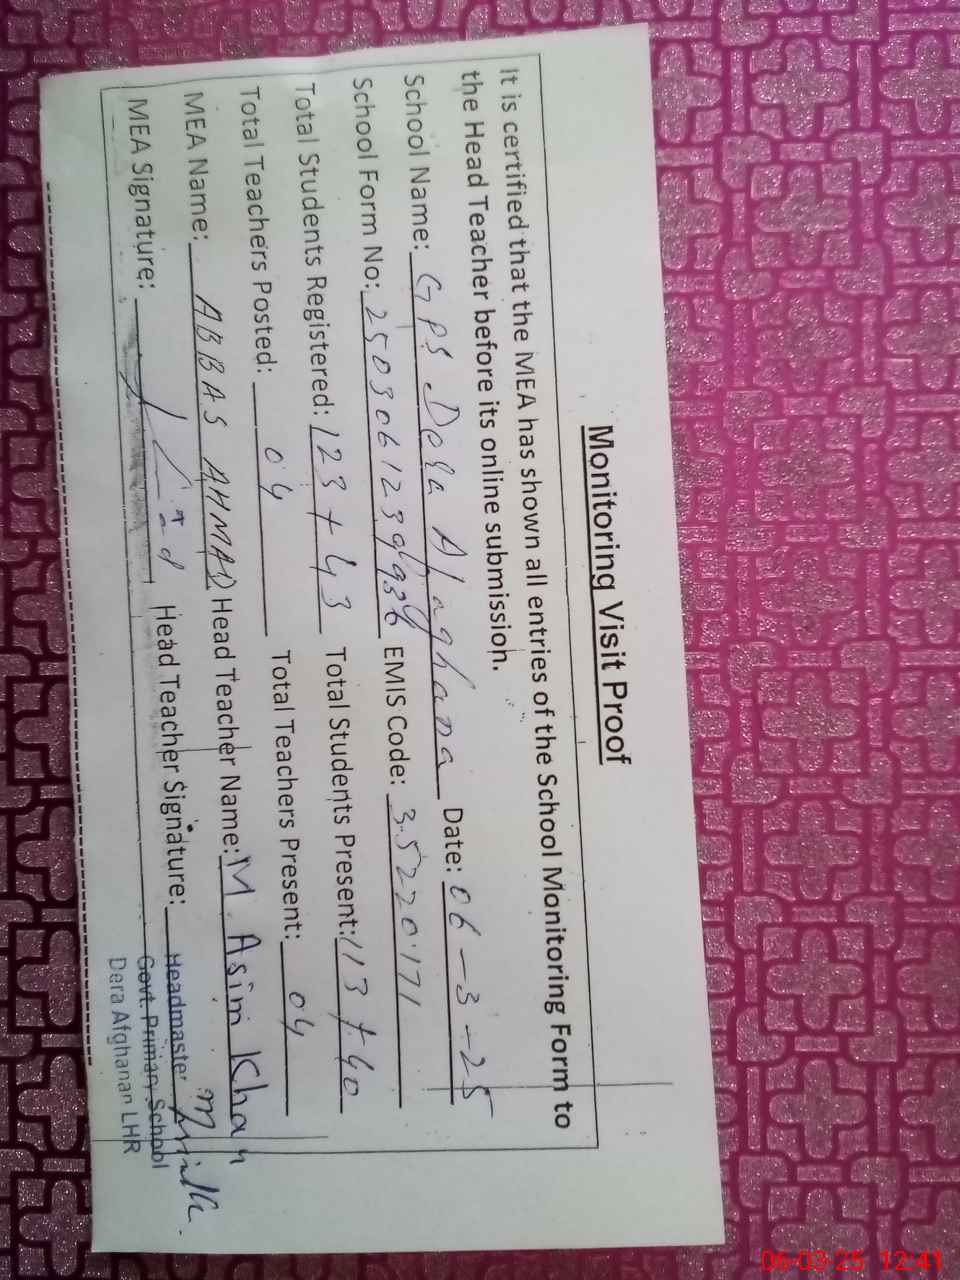 Monitoring Visit Proof
It is certified that the MEA has shown all entries of the School Monitoring Form to
the Head Teacher before its online submission.
School Name: GPS Dera Afaghana Date: 06-3-25
School Form No: 2503061239936 EMIS Code: 35220171
Total Students Registered: 123+43 Total Students Present: 113+40
Total Teachers Posted: 04 Total Teachers Present: 04
MEA Name: ABBAS AHMAD Head Teacher Name: M. Asim Khan
MEA Signature: Head Teacher Signature:
Headmaster
Govt. Primary School
Dera Afghanan LHR
06-03-25 12:41